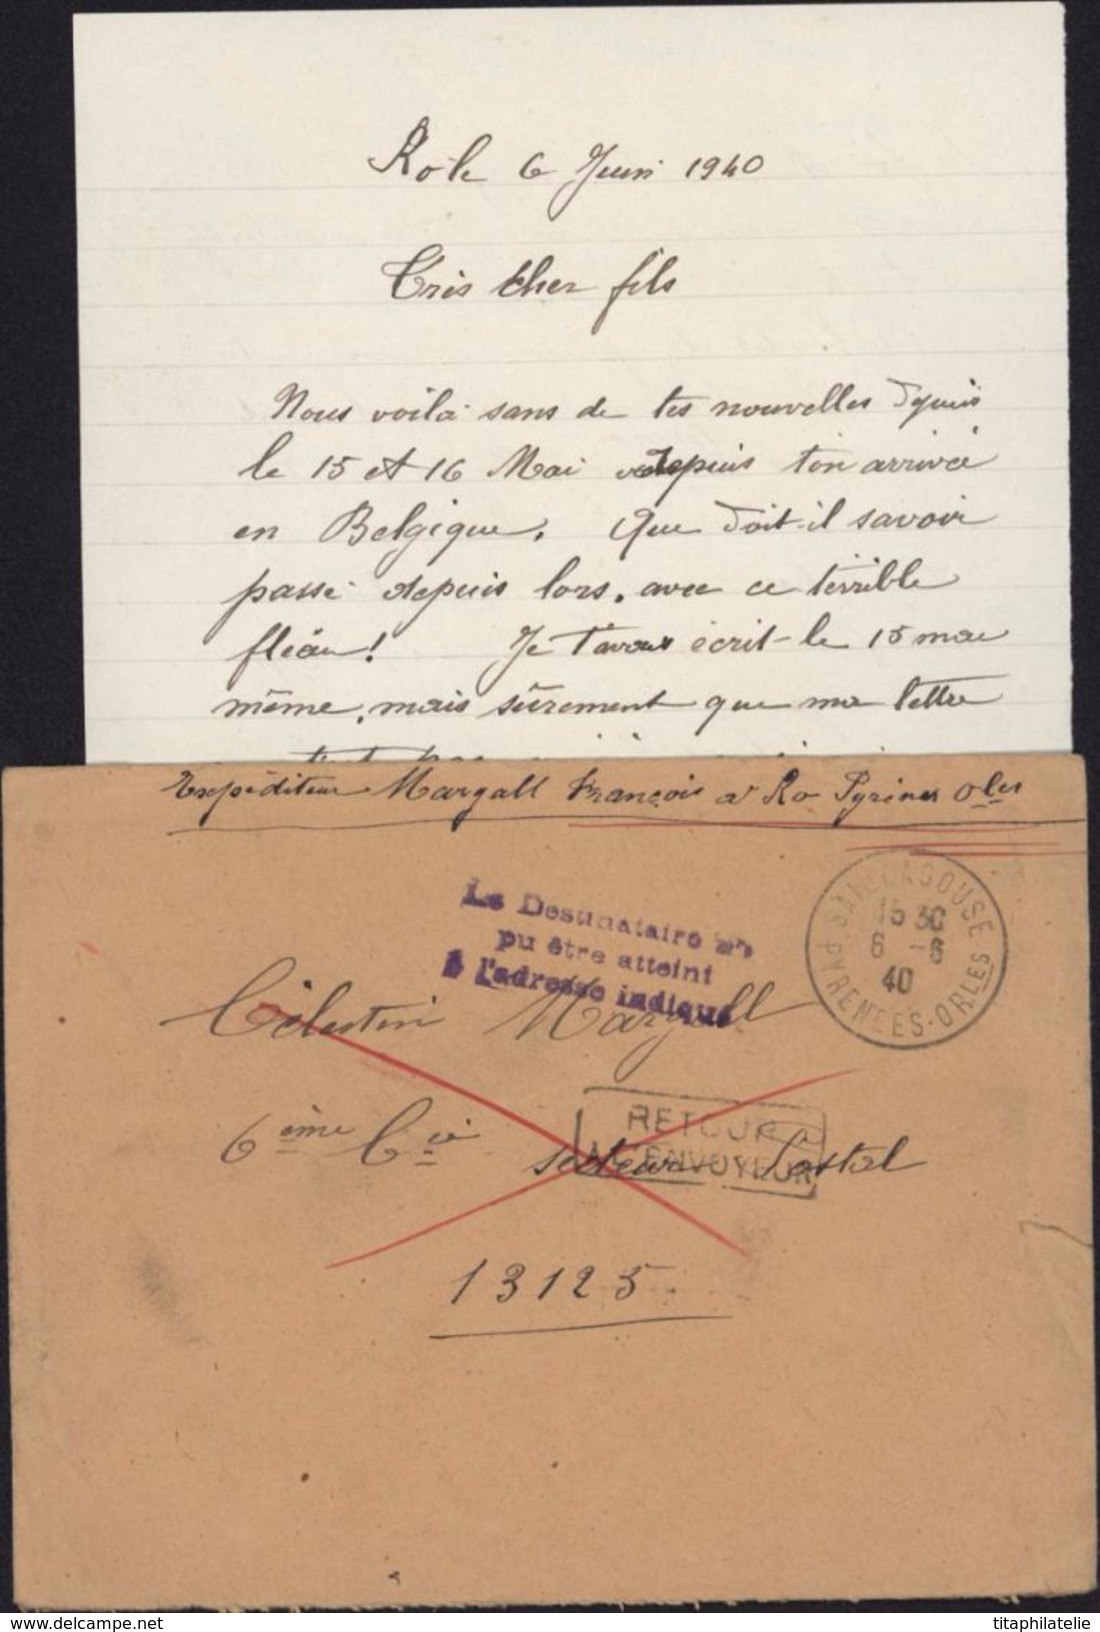 Ro le 6 Juin 1940
Très cher fils
Nous voilà sans de tes nouvelles depuis
le 15 et 16 Mai depuis ton arrivée
en Belgique. Que doit-il savoir
passé depuis lors, avec ce terrible
fléau! Je t'avais écrit le 15 mai
même, mais sûrement que ma lettre
Expéditeur Margall François à Ro Pyrénées Oles
Le Destinataire n'a
pu être atteint
à l'adresse indiqué
SAILLAGOUSE
15 30
6 -6
40
PYRENEES-ORLES
Célestin Margall
6ème Cie secteur Postal
RETOUR
A L'ENVOYEUR
13125
delcampe.net
titaphilatelie